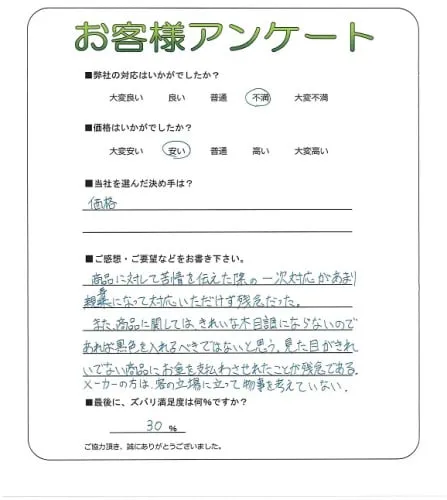 お客様アンケート
■弊社の対応はいかがでしたか？
大変良い 良い 普通 不満 大変不満
■価格はいかがでしたか？
大変安い 安い 普通 高い 大変高い
■当社を選んだ決め手は？
価格
■ご感想・ご要望などをお書き下さい。
商品に対して苦情を伝えた際の一次対応があまり
親身になって対応いただけず残念だった。
また、商品に関しては、きれいな木目調にならないので
あれば黒色を入れるべきではないと思う。見た目がきれ
いでない商品にお金を支払わさせれたことが残念である。
メーカーの方は、客の立場に立って物事を考えていない。
■最後に、ズバリ満足度は何％ですか？
30 %
ご協力頂き、誠にありがとうございました。